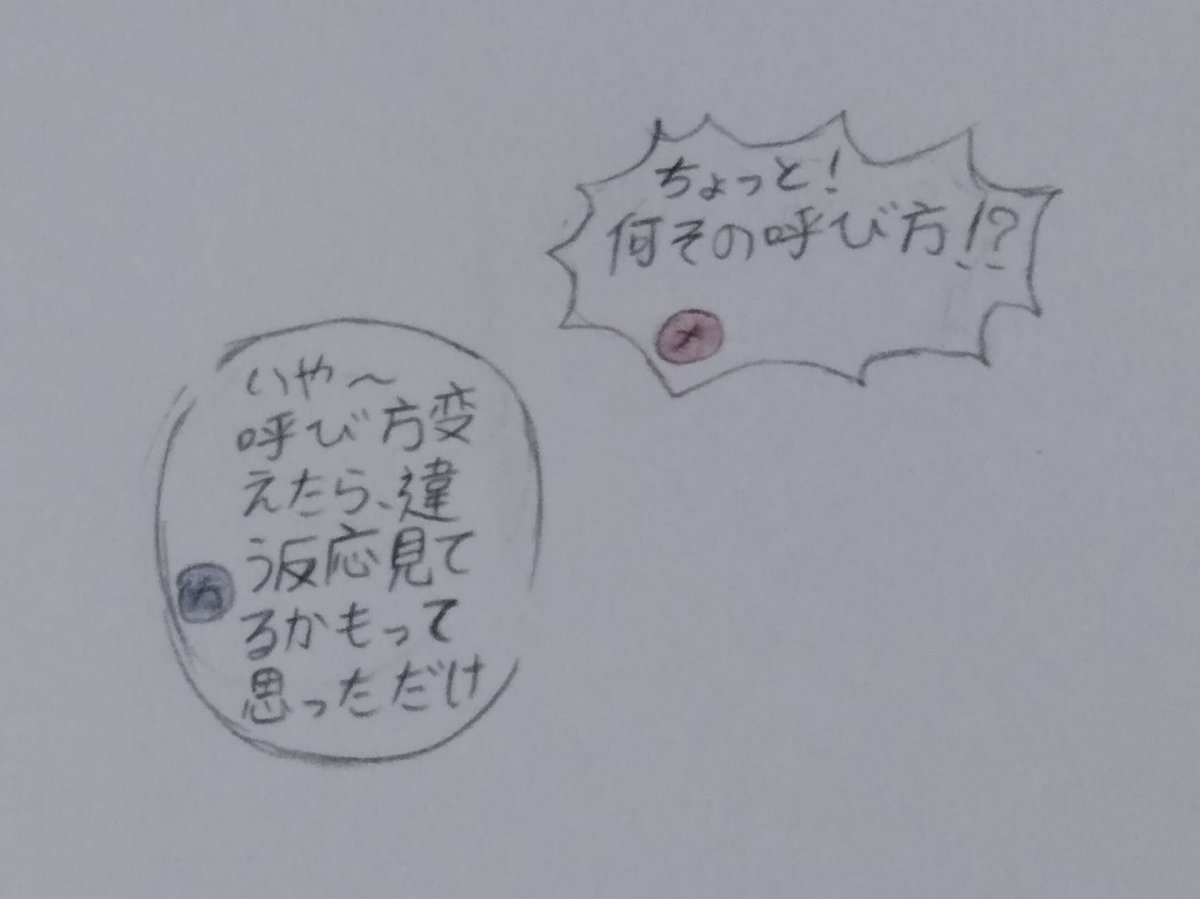 ちょっと!
何その呼び方!?
メ
いや〜
呼び方変
えたら、違
う反応見て
るかもって
思っただけ